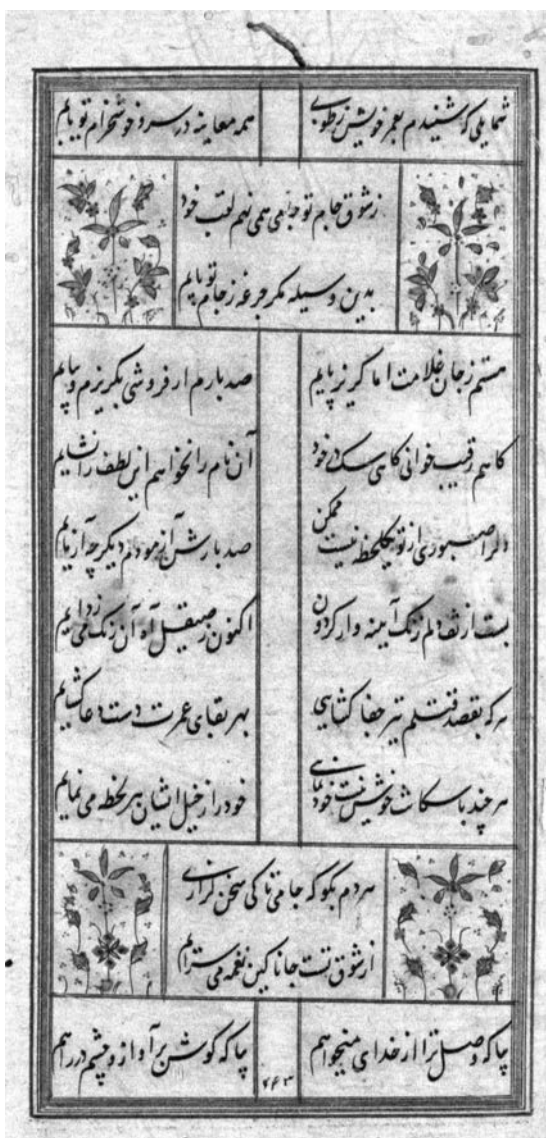 شمایلی که شنیدم بعمر خویش ز طوبی همه معاینه در سرو خوشخرام تو یابم
ز شوق جام تو جامی همی نهم لقب خود
بدین وسیله مگر جرعه ز جام تو یابم
هستم ز جان غلامت اما گریز پایم صد بارم ار فروشی بگریزم و بیایم
گاهم رقیب خوانی گاهی سگ در خود آن نام را نخواهم این لطف را نشایم
دلرا صبوری از تو یکلحظه نیست ممکن صد بارش آزمودم دیگر چه آزمایم
بست از تف دلم زنگ آیینه وار گردون اکنون ز صیقل آه آن زنگ می زدایم
هر گه بقصد قتلم تیر جفا گشایی بهر بقای عمرت دست دعا گشایم
هر چند با سگانت خوش نیست خودنمایی خود را ز خیل ایشان هر لحظه می نمایم
هر دم مگو که جامی تا کی سخن گزاری
از شوق تست جانا کین نغمه می سرایم
بیا که وصل ترا از خدای میخواهم بیا که گوش بر آواز و چشم در راهم
۴۶۳